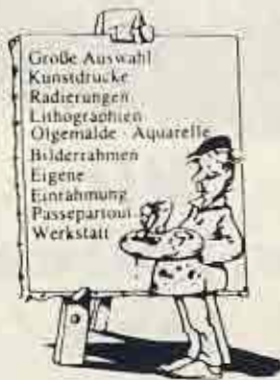 Große Auswahl
Kunstdrucke
Radierungen
Lithographien
Olgemälde · Aquarelle
Bilderrahmen
Eigene
Einrahmung
Passepartout
Werkstatt